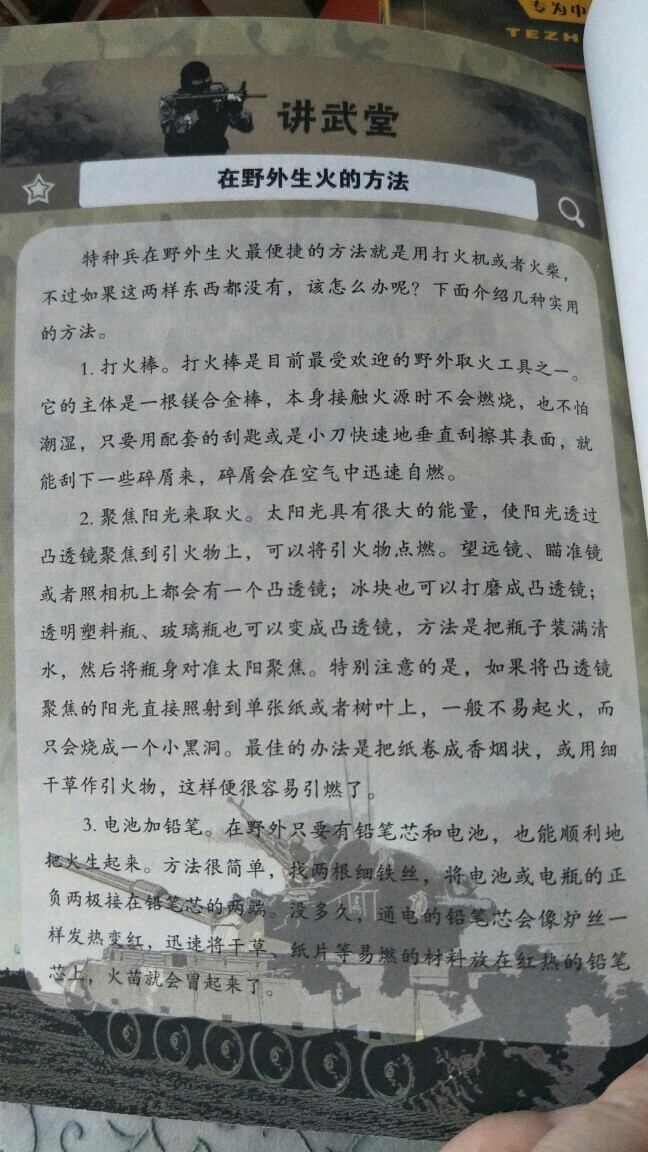 专为中
TEZH
讲武堂
在野外生火的方法
特种兵在野外生火最便捷的方法就是用打火机或者火柴，
不过如果这两样东西都没有，该怎么办呢？下面介绍几种实用
的方法。
1. 打火棒。打火棒是目前最受欢迎的野外取火工具之一。
它的主体是一根镁合金棒，本身接触火源时不会燃烧，也不怕
潮湿，只要用配套的刮匙或是小刀快速地垂直刮擦其表面，就
能刮下一些碎屑来，碎屑会在空气中迅速自燃。
2. 聚焦阳光来取火。太阳光具有很大的能量，使阳光透过
凸透镜聚焦到引火物上，可以将引火物点燃。望远镜、瞄准镜
或者照相机上都会有一个凸透镜；冰块也可以打磨成凸透镜；
透明塑料瓶、玻璃瓶也可以变成凸透镜，方法是把瓶子装满清
水，然后将瓶身对准太阳聚焦。特别注意的是，如果将凸透镜
聚焦的阳光直接照射到单张纸或者树叶上，一般不易起火，而
只会烧成一个小黑洞。最佳的办法是把纸卷成香烟状，或用细
干草作引火物，这样便很容易引燃了。
3. 电池加铅笔。在野外只要有铅笔芯和电池，也能顺利地
把火生起来。方法很简单，找两根细铁丝，将电池或电瓶的正
负两极接在铅笔芯的两端。没多久，通电的铅笔芯会像炉丝一
样发热变红，迅速将干草、纸片等易燃的材料放在红热的铅笔
芯上，火苗就会冒起来了。